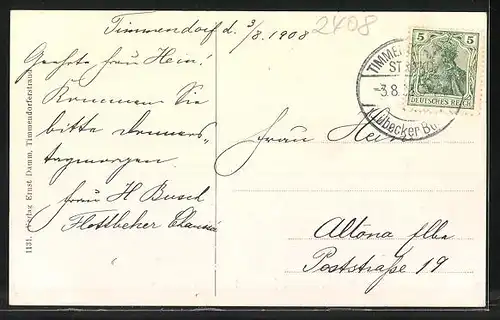 Timmendorf d. 3/8. 1908
2408
Geehrte Frau Hein!
Kommen Sie
bitte Donners-
tagmorgen.
Frau H Busch
Flottbeker Chaussee
Frau Hein
Altona Elbe
Poststraße 19
5 5
DEUTSCHES REICH
TIMMEN
ST
-3.8.
Lübecker Bu
1131. Verlag Ernst Damm, Timmendorferstrand